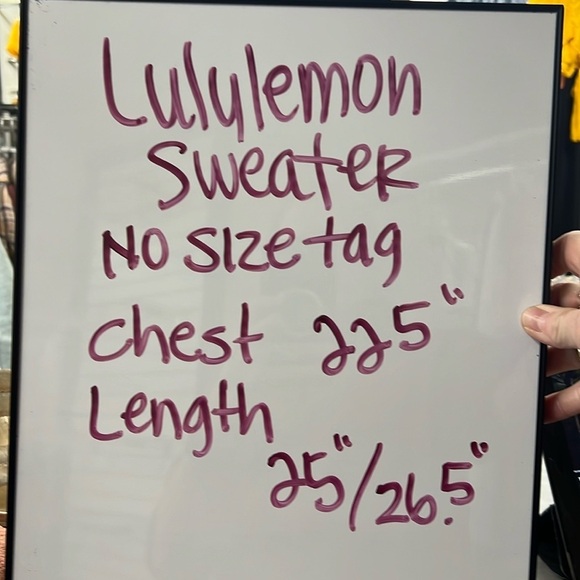 Lululemon
Sweater
No size tag
Chest 225"
Length
25"/26.5"